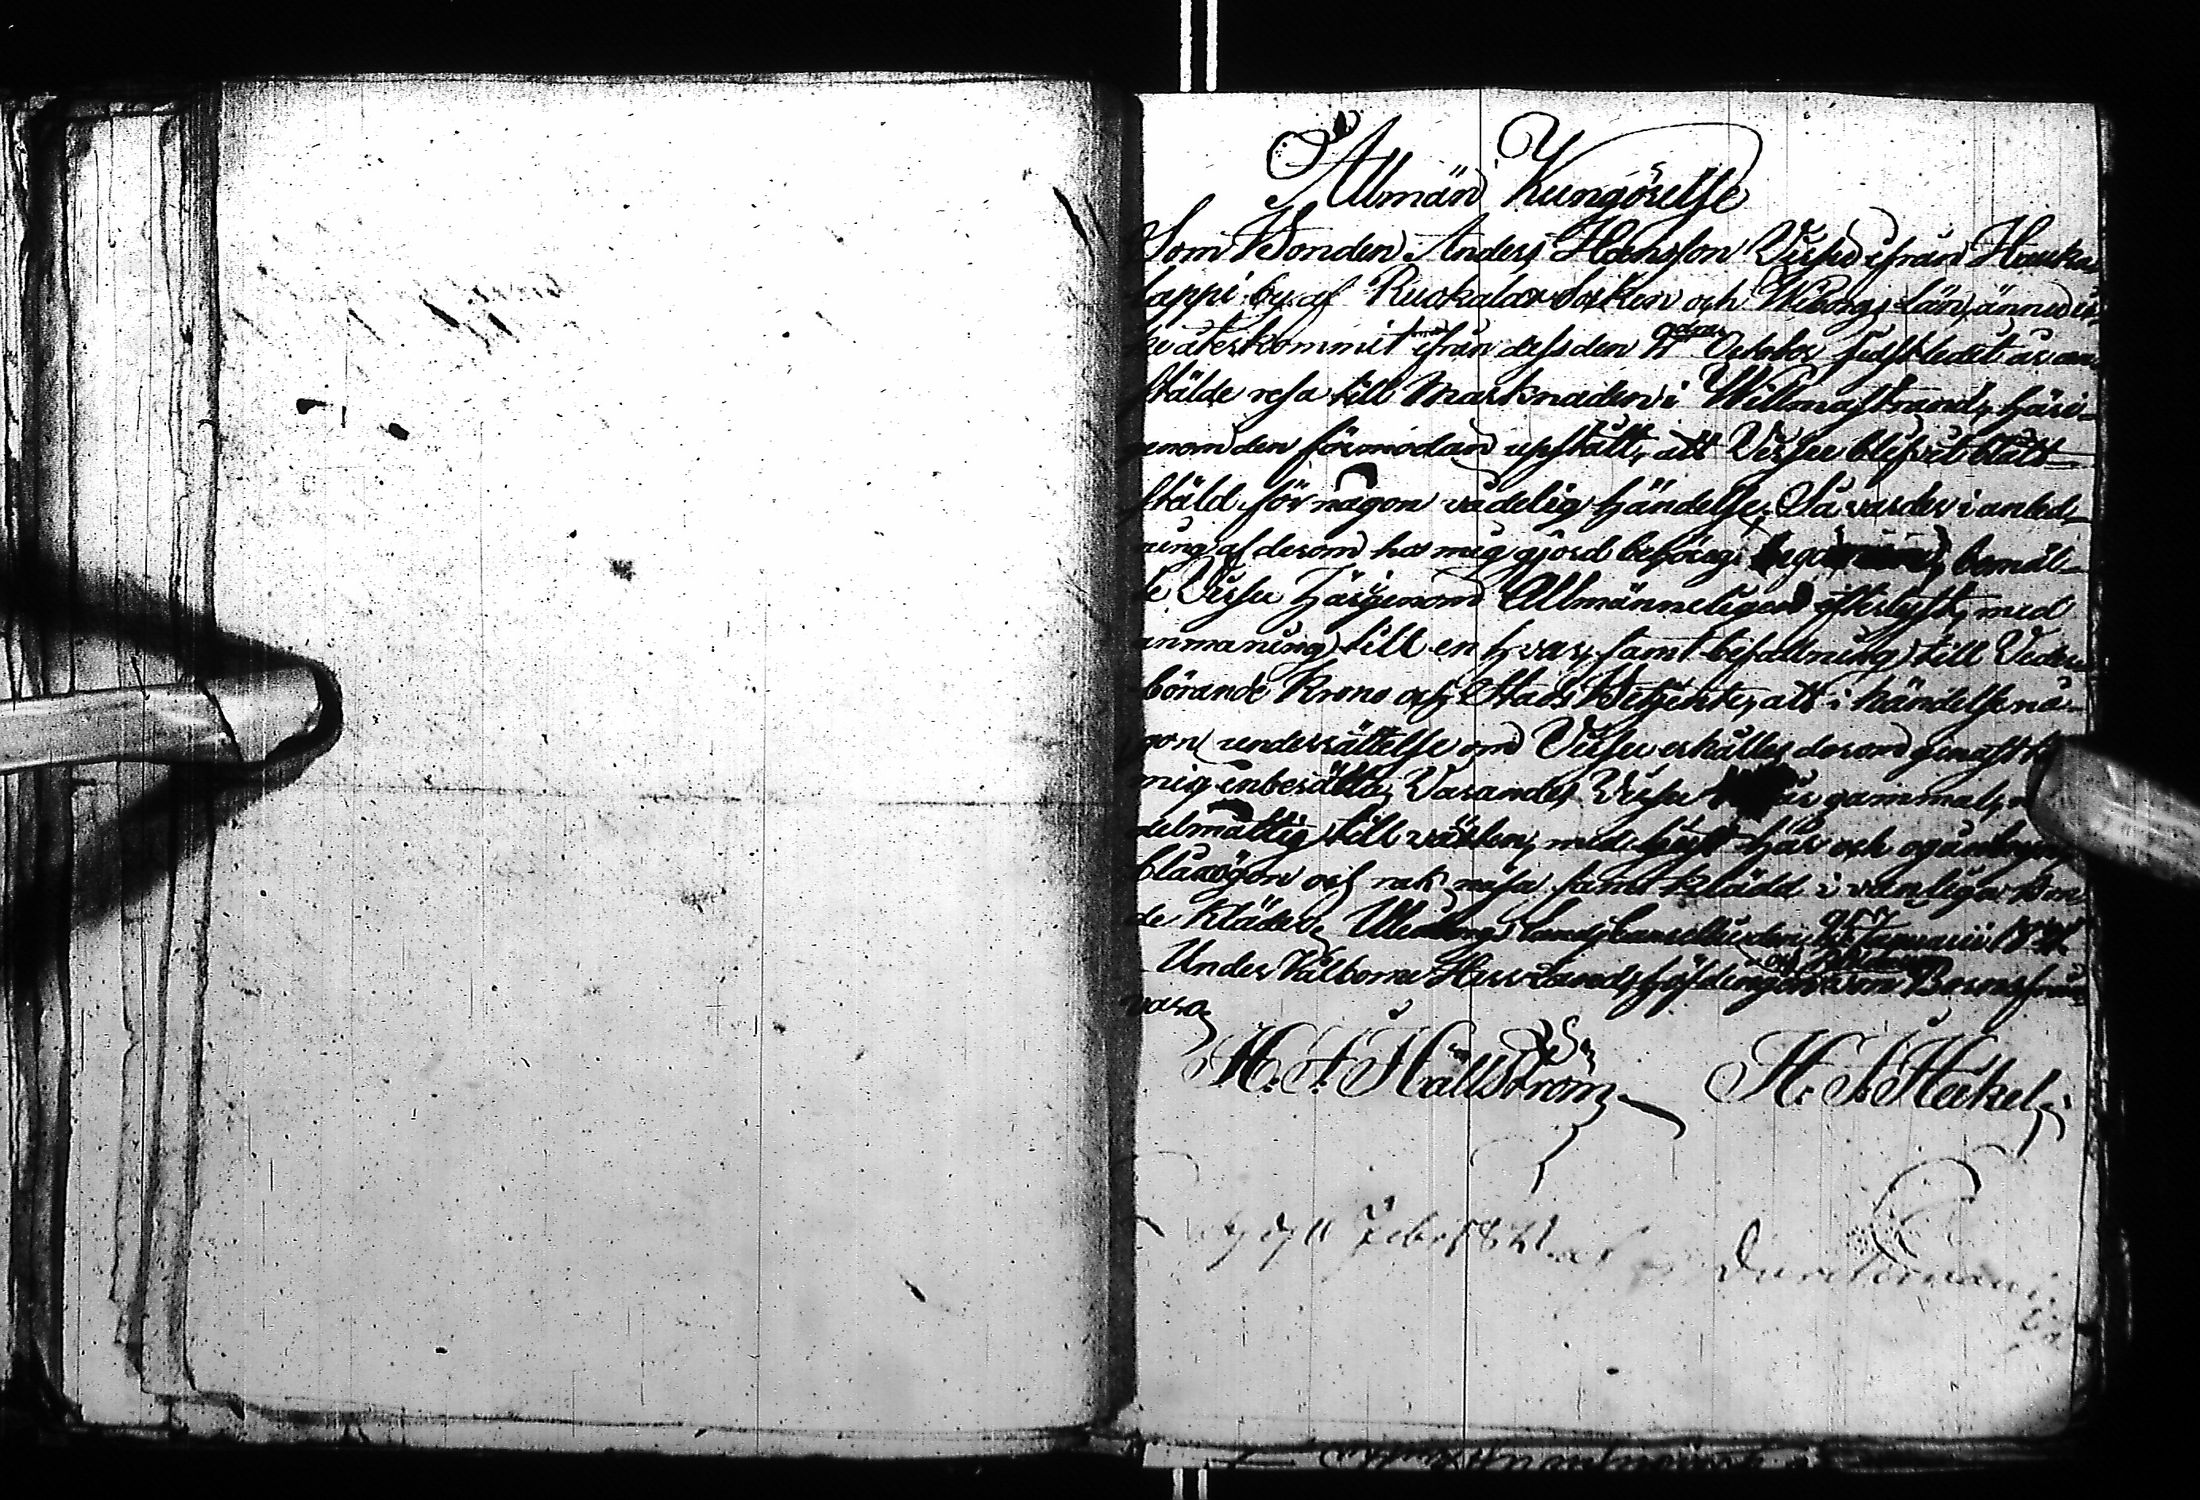 Allmän Kungörelse
Som Bonden Anders Hansson Virsu ifrån Hauka
lappi by af Ruokalax Socken och Wiborgs län, ännu ic
ke återkommit ifrån dess den 2dra October sidstledit år an
stälde resa till Marknaden i Willmanstrand, häri-
genom den förmodan upstått, att Virsu blifvit blått
stäld för någon vådelig händelse; Så varder i anled-
ning af derom hos mig gjord behörig bemäl-
te Virsu härigenom Allmänneligen efterlyst, med
anmaning till en hvar, samt befallning till Veder
börande Krono och Stads Betjente, att i händelse nå-
gon underrättelse om Virsu erhålles derom genast
mig inberätta, Varandes Virsu år gammal,
delmåttig till växten, med hår och ögunbryn,
blå ögon och rak näsa samt klädd i vanliga Bon
de kläder, Wiborgs Lands Cancellie den 25 Januarii 1821.
Under Välborne Herr Landshöfdingen som
varo
H. F. Hällström H. J. Heckel
11 Febr 1821.